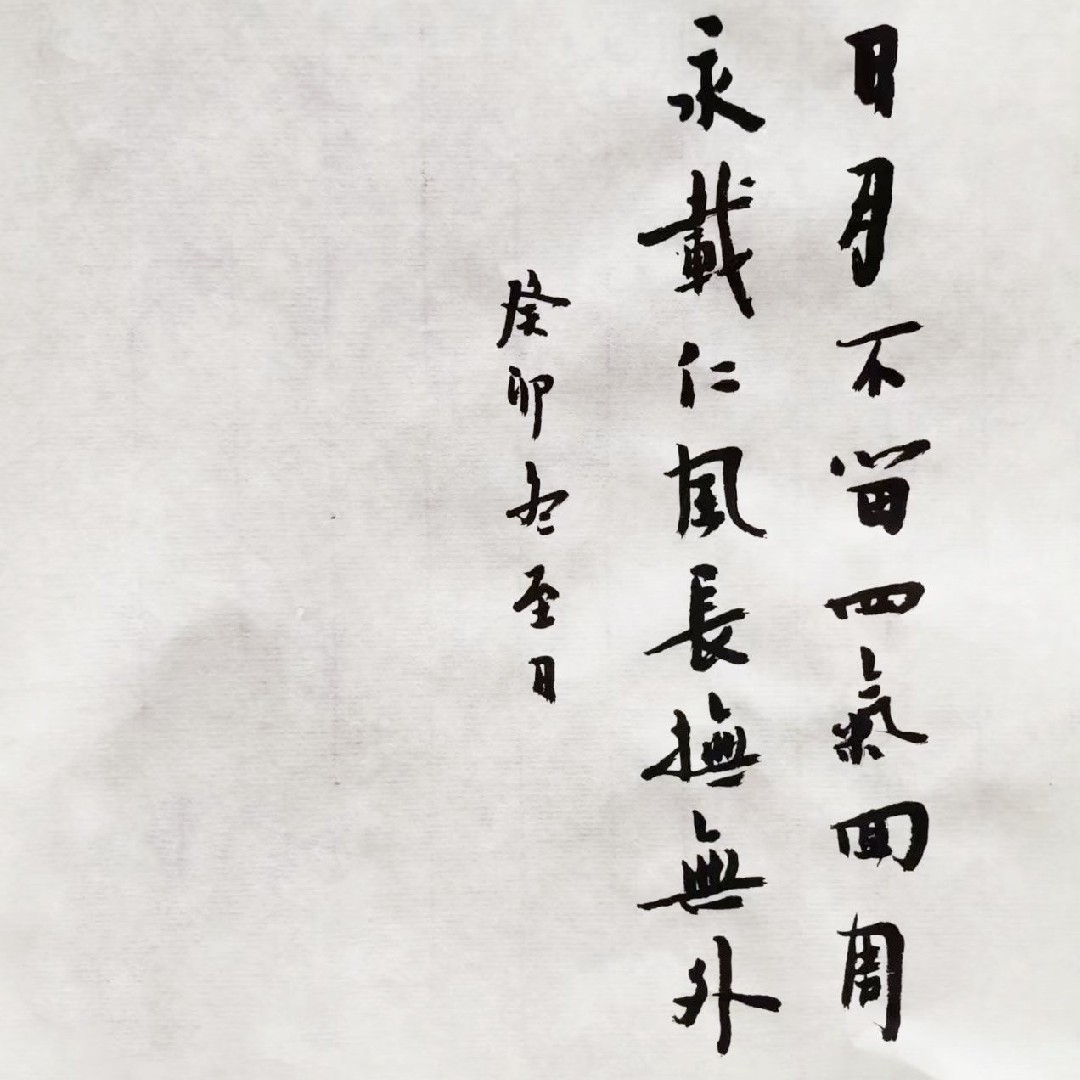 日月不留四氣回周
永載仁風長撫無外
癸卯冬至日